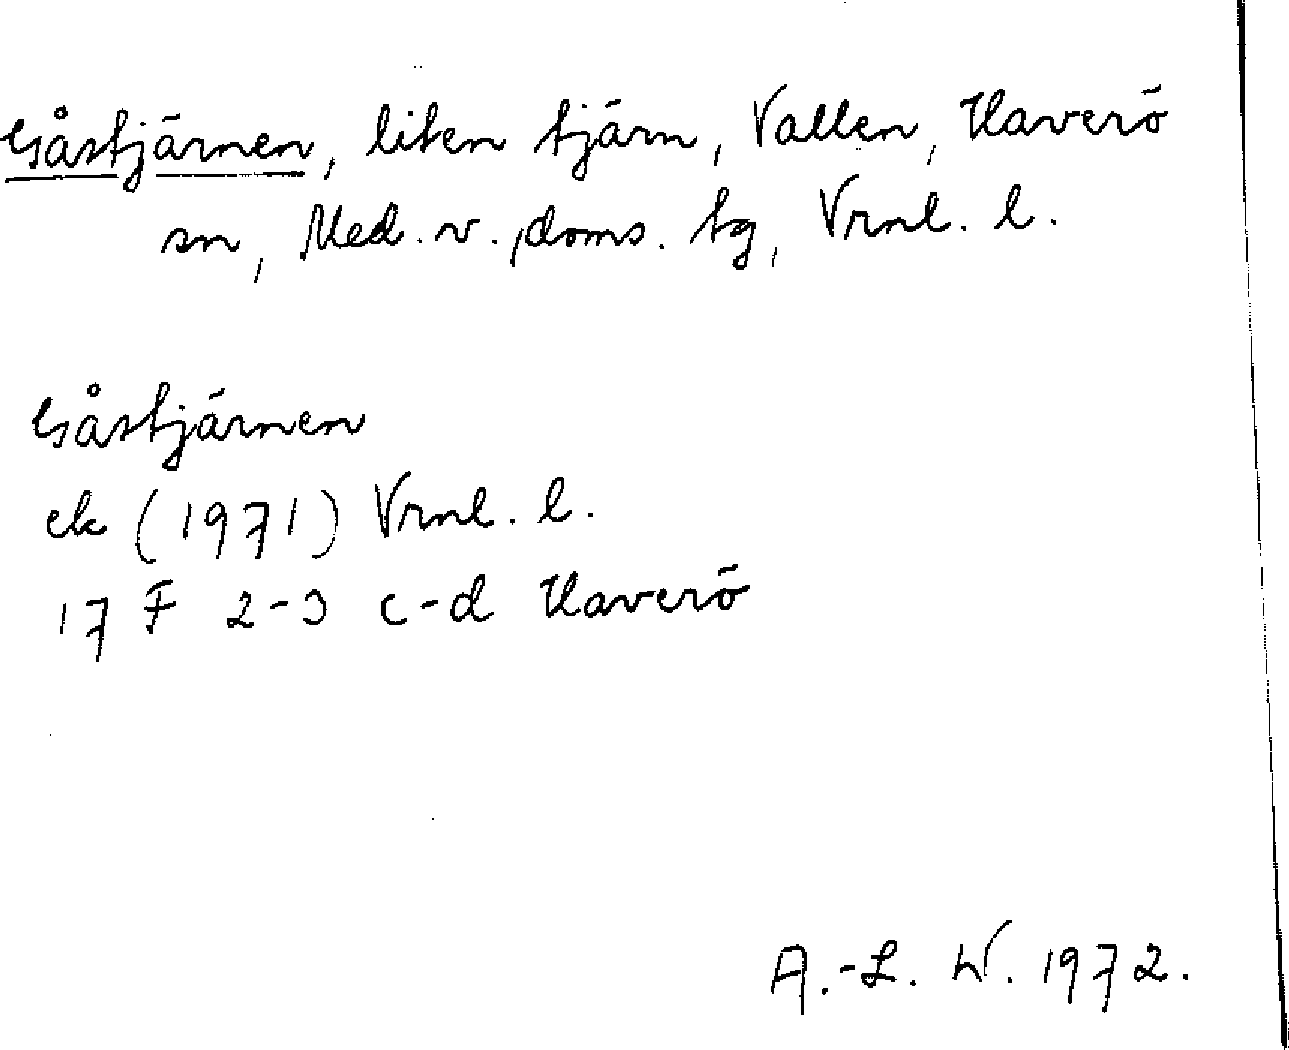 Gåstjärnen, liten tjärn, Vallen, Haverö
sn, Med. v. doms. tg, Vrnl. l.
Gåstjärnen
ek (1971) Vrnl. l.
17 F 2-3 c-d Haverö
A.-L. W. 1972.